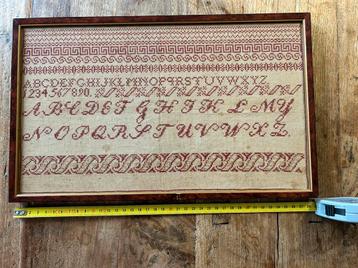 ABCDEFGHIJKLMNOPQRSTUVWXYZ
1234567890
ABCDEFGHIKLMY
NOPQRSTUVWXZ